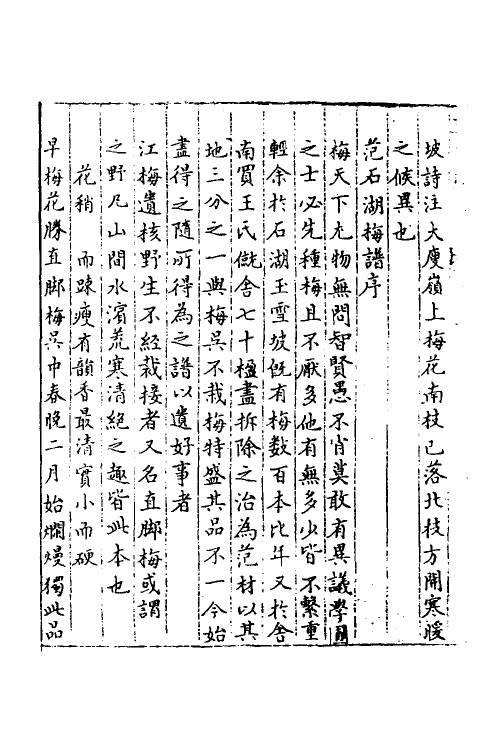 坡詩注大庾嶺上梅花南枝已落北枝方開寒暖
之候異也
范石湖梅譜序
梅天下尤物無問智賢愚不肖莫敢有異議學圃
之士必先種梅且不厭多他有無多少皆不繫重
輕余於石湖玉雪坡既有梅数百本比年又於舍
南買王氏僦舍七十楹盡拆除之治為范村以其
地三分之一與梅吳下栽梅特盛其品不一今始
盡得之隨所得為之譜以遺好事者
江梅遺核野生不經栽接者又名直脚梅或謂
之野凡山間水濱荒寒清絕之趣皆此本也
花稍 而踈瘦有韻香最清實小而硬
早梅花勝直脚梅吳中春晚二月始爛熳獨此品